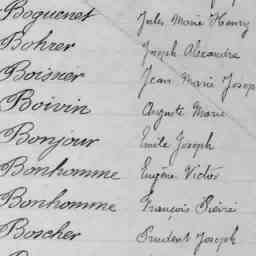 Boguenet Jules Marie Henry
Bohrer Joseph Alexandre
Boisnier Jean Marie Josep
Boivin Auguste Marie
Bonjour Emile Joseph
Bonhomme Eugène Victor
Bonhomme François Pierre
Boscher Prudent Joseph